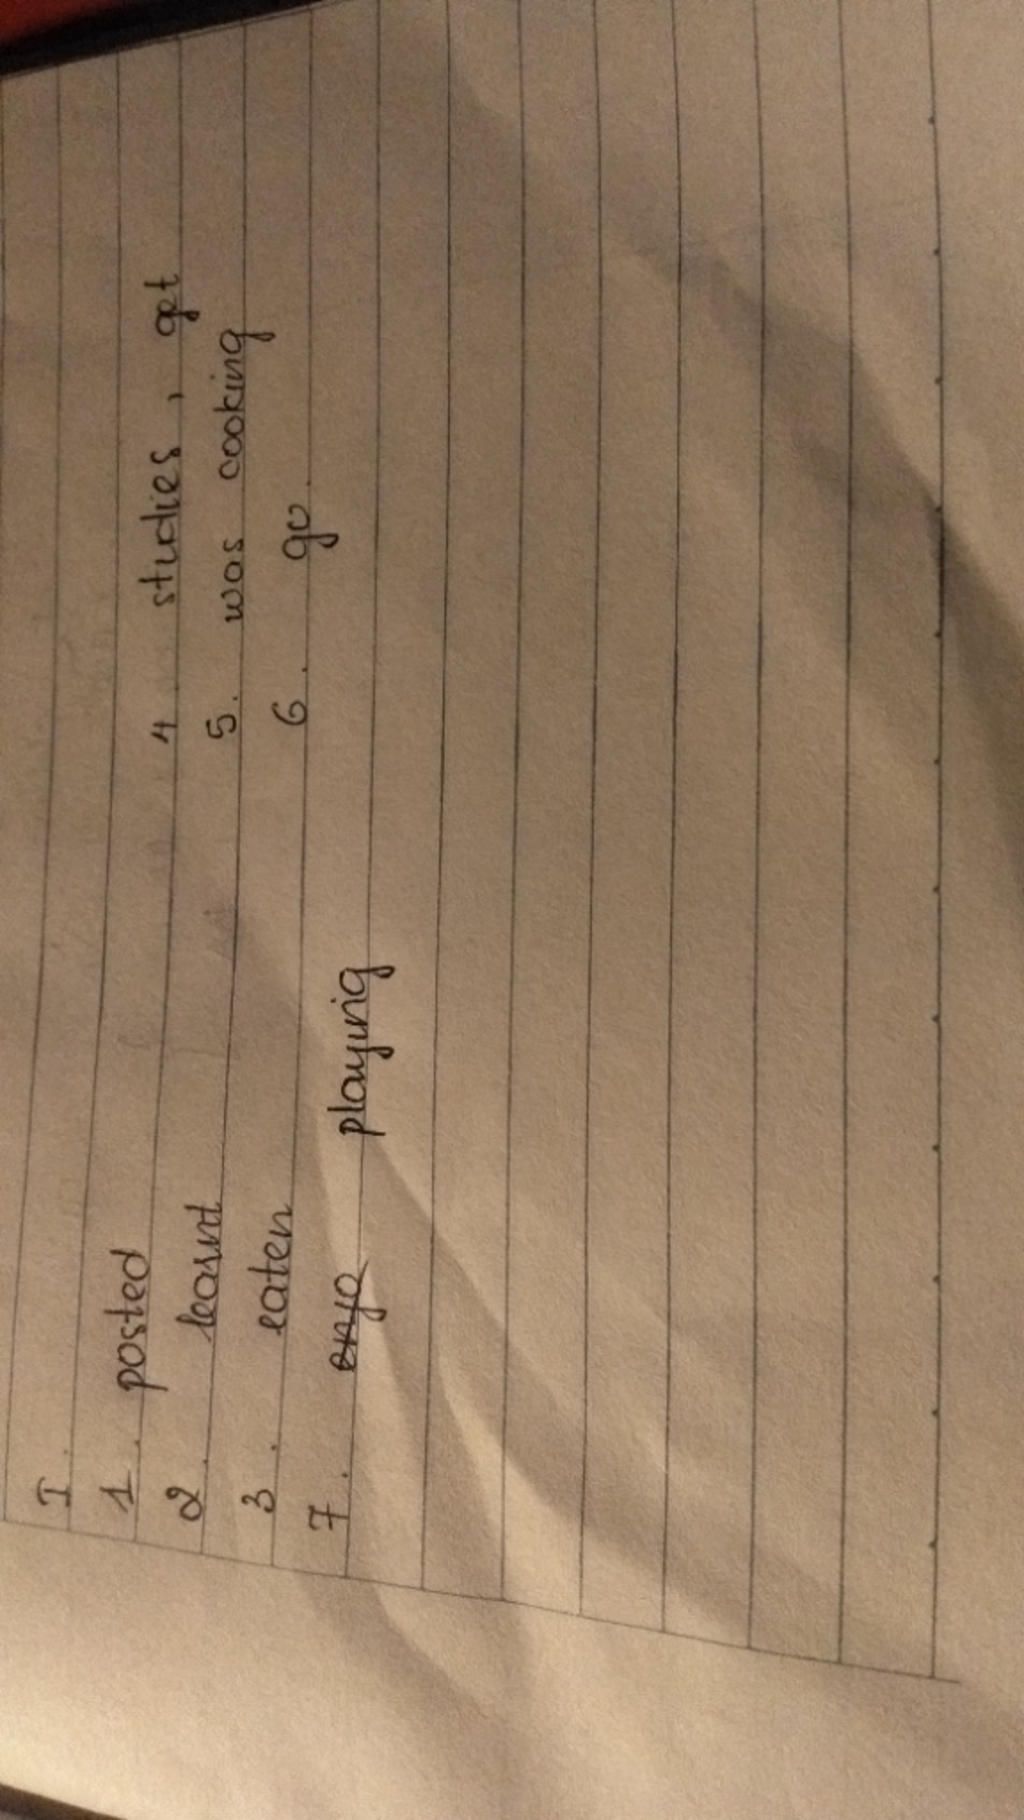 I.
1. posted
2. learnt 4. studies, get
3. eaten 5. was cooking
7. enjo playing 6. go